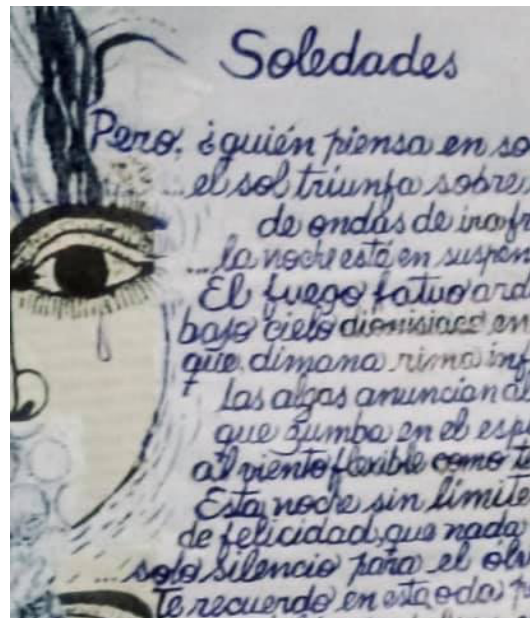 Soledades
Pero, ¿quién piensa en so
...el sol triunfa sobre
de ondas de ira fr
...la noche está en suspen
El fuego fatuo ard
bajo cielo dionisiaco en
que dimana rima inf
Las algas anuncian al
que zumba en el esp
al viento flexible como t
Esta noche sin límite
de felicidad, que nada
... solo silencio para el olv
Te recuerdo en esta oda p